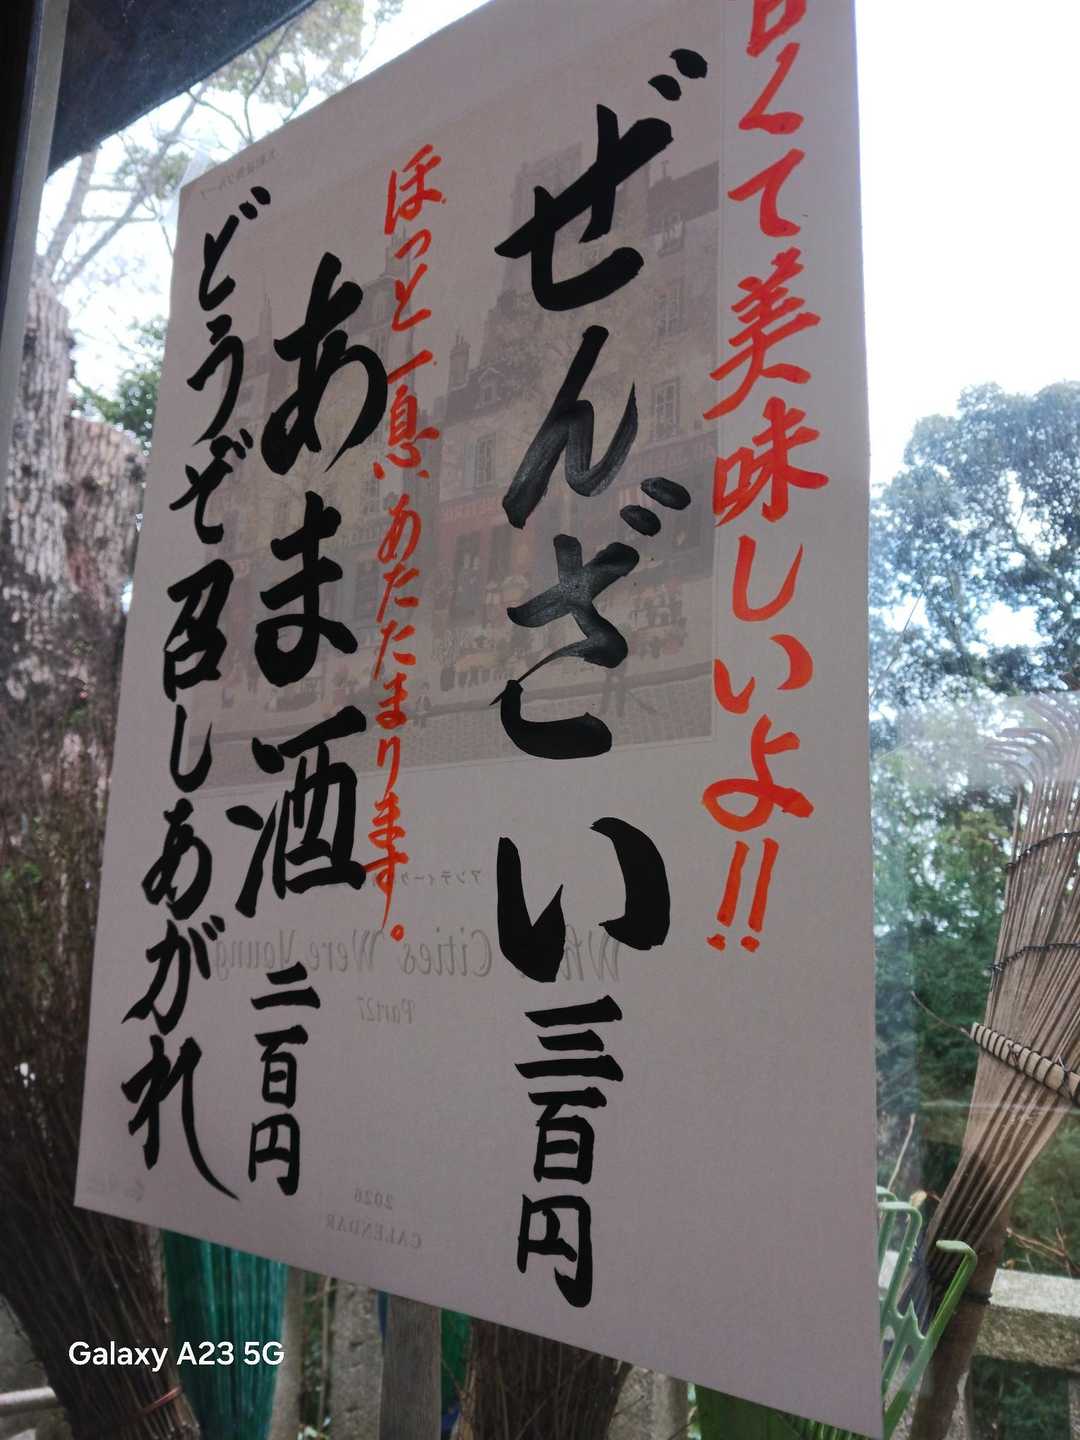 甘くて美味しいよ!!
ぜんざい 三百円
ほっと一息、あたたまります。
あま酒 二百円
どうぞ召しあがれ
アンティーク
When Cities Were Young
Part27
2026
CALENDAR
Galaxy A23 5G